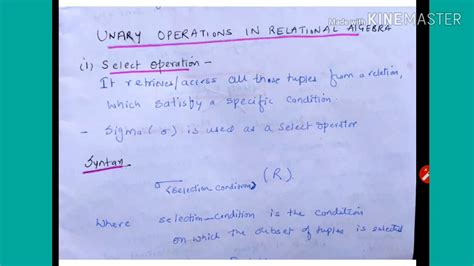 Made with KINEMASTER
UNARY OPERATIONS IN RELATIONAL ALGEBRA
(1) Select Operation -
It retrieves/access all those tuples from a relation,
which satisfy a specific condition.
- Sigma (σ) is used as a select operator
Syntax
σ (selection condition) (R).
Where selection_condition is the condition
on which the subset of tuples is selected